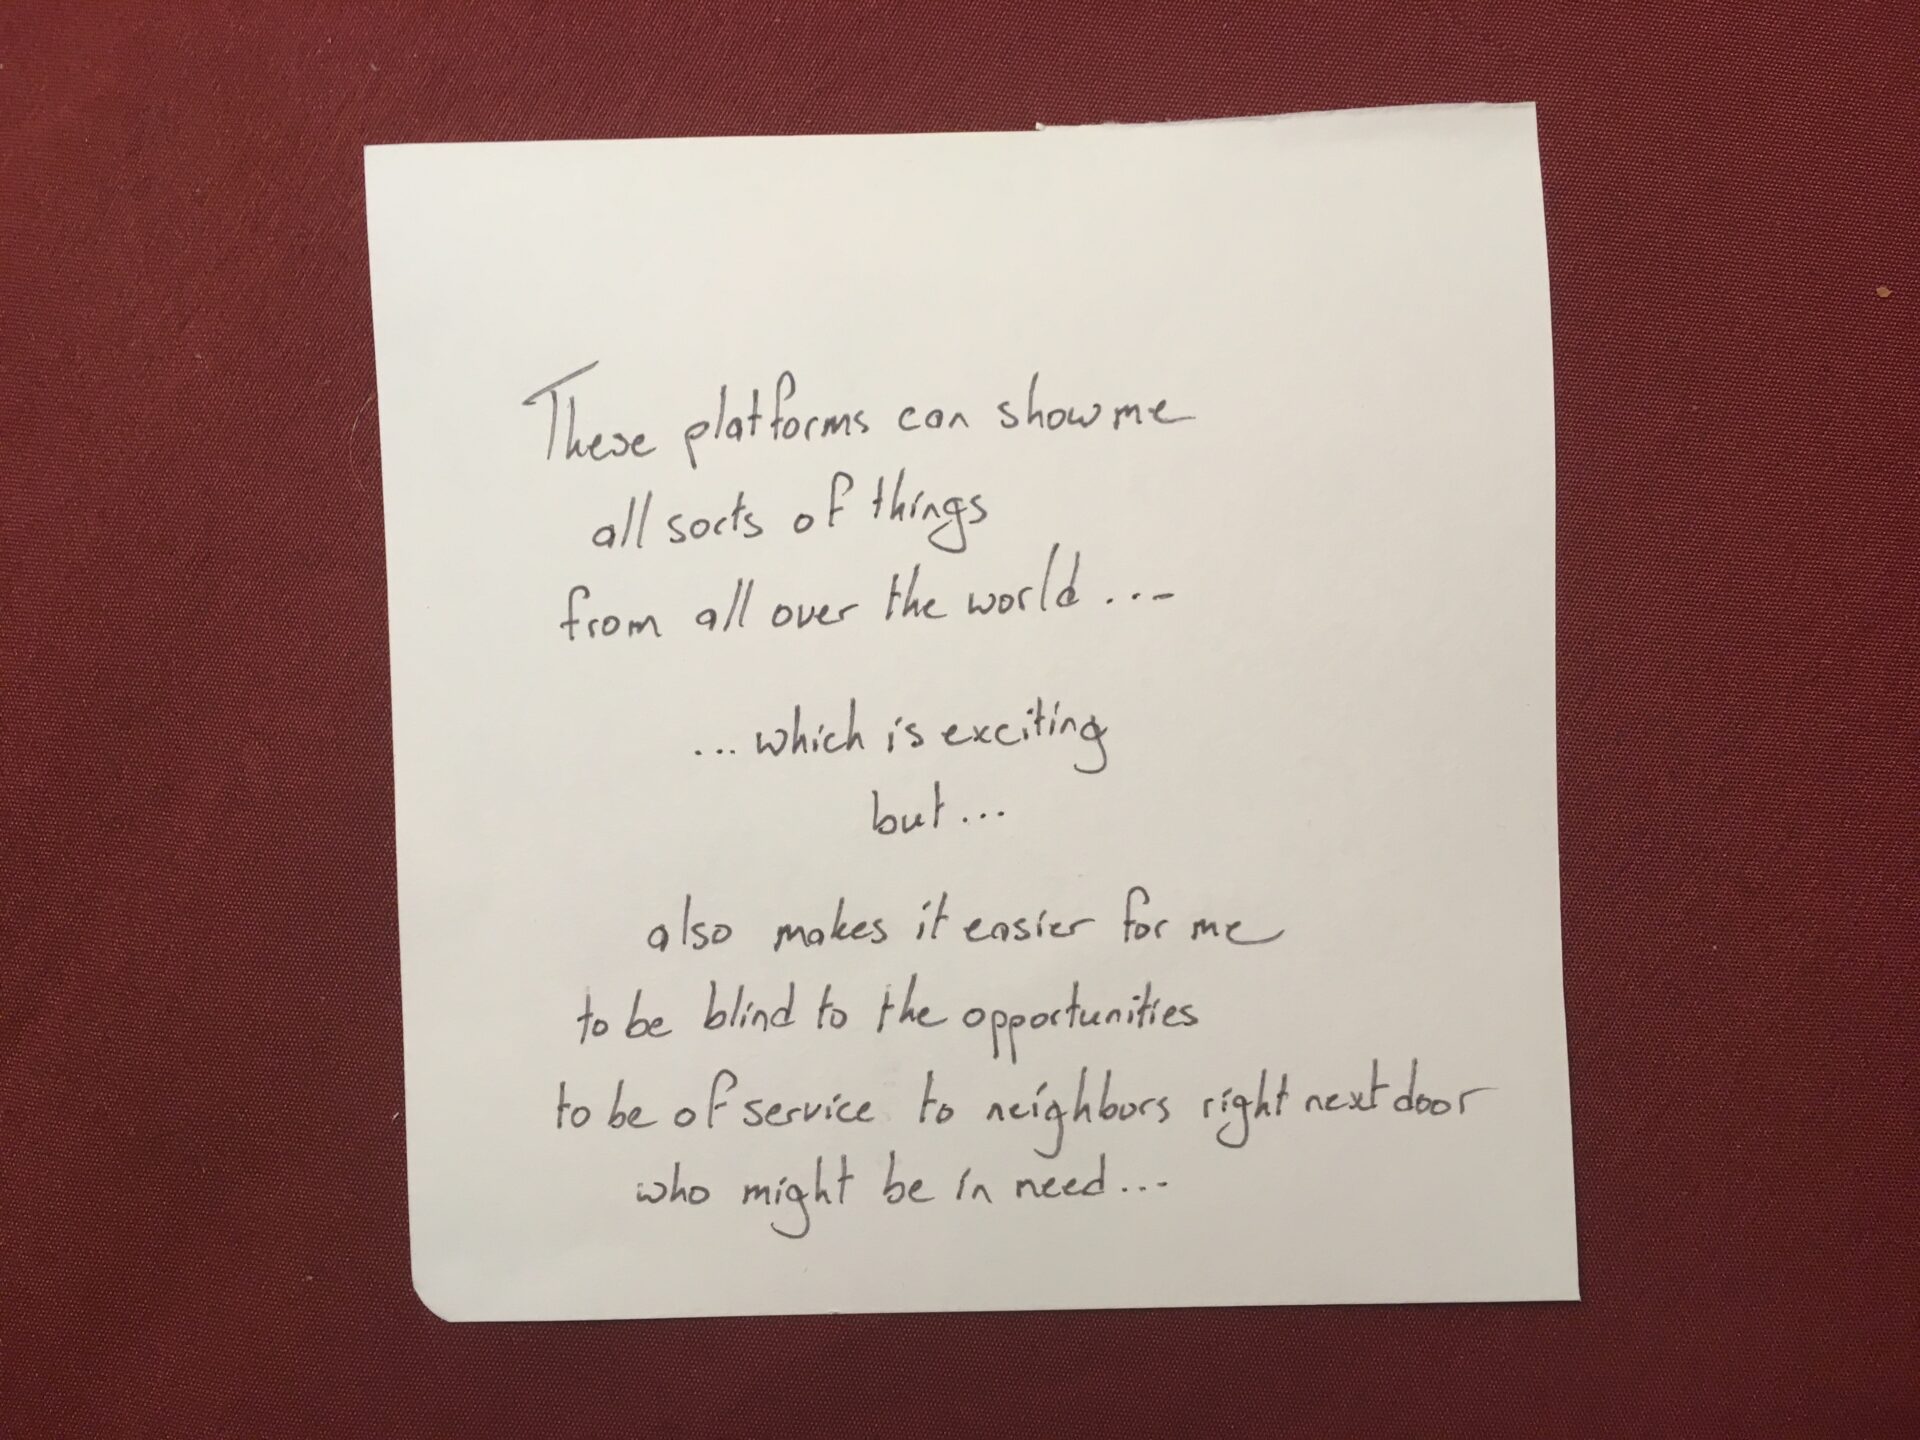 These platforms can show me
all sorts of things
from all over the world ...
... which is exciting
but ...
also makes it easier for me
to be blind to the opportunities
to be of service to neighbors right next door
who might be in need ...